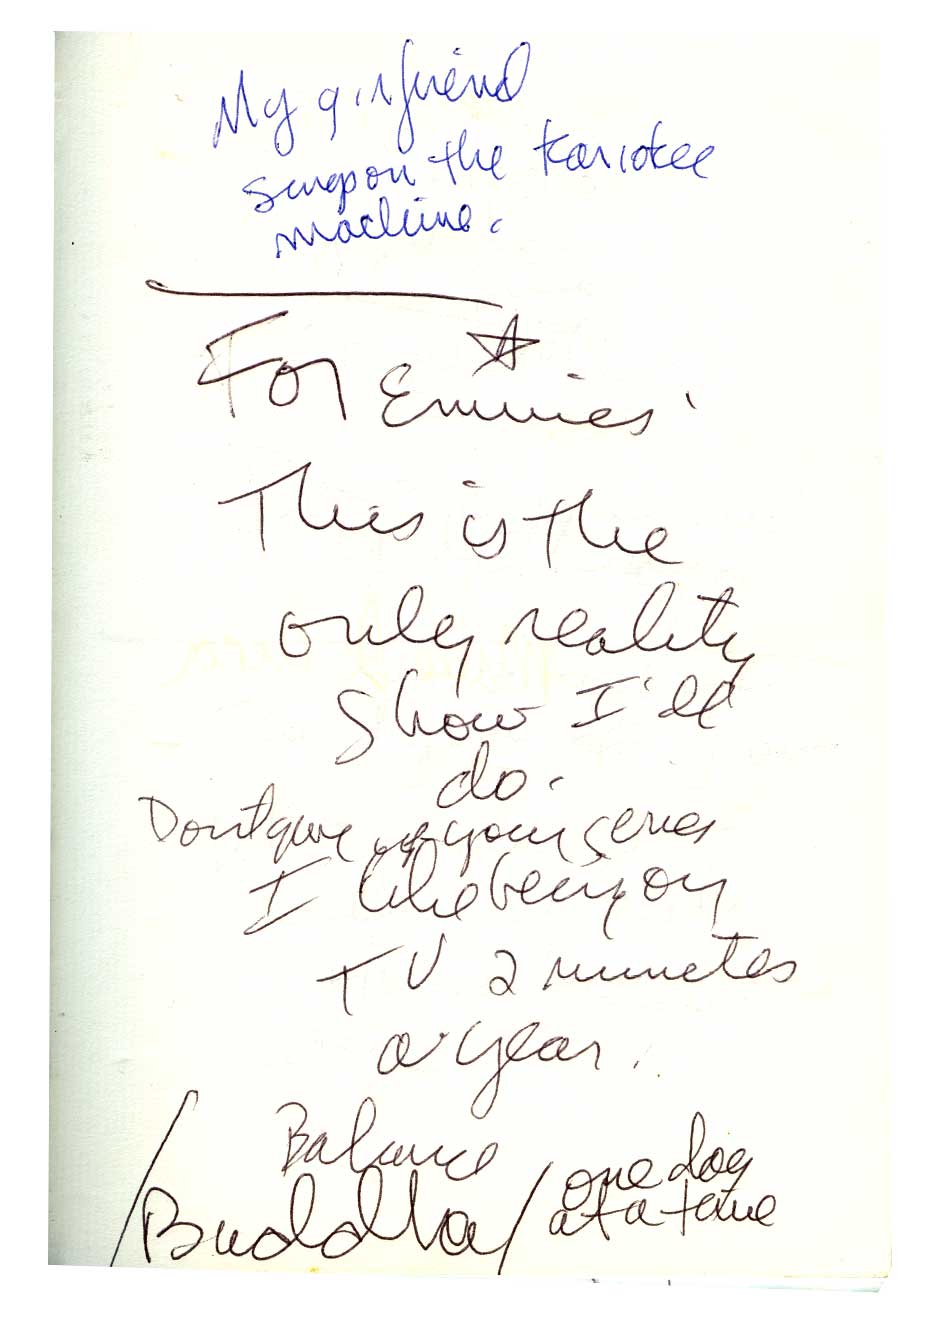 My girlfriend
sings on the Kariokee
machine.
For Emmies'
This is the
only reality
show I'll
do.
Dont give up your series
I like being on
TV 2 minutes
a year.
Balance
/Buddha/ one day
at a time